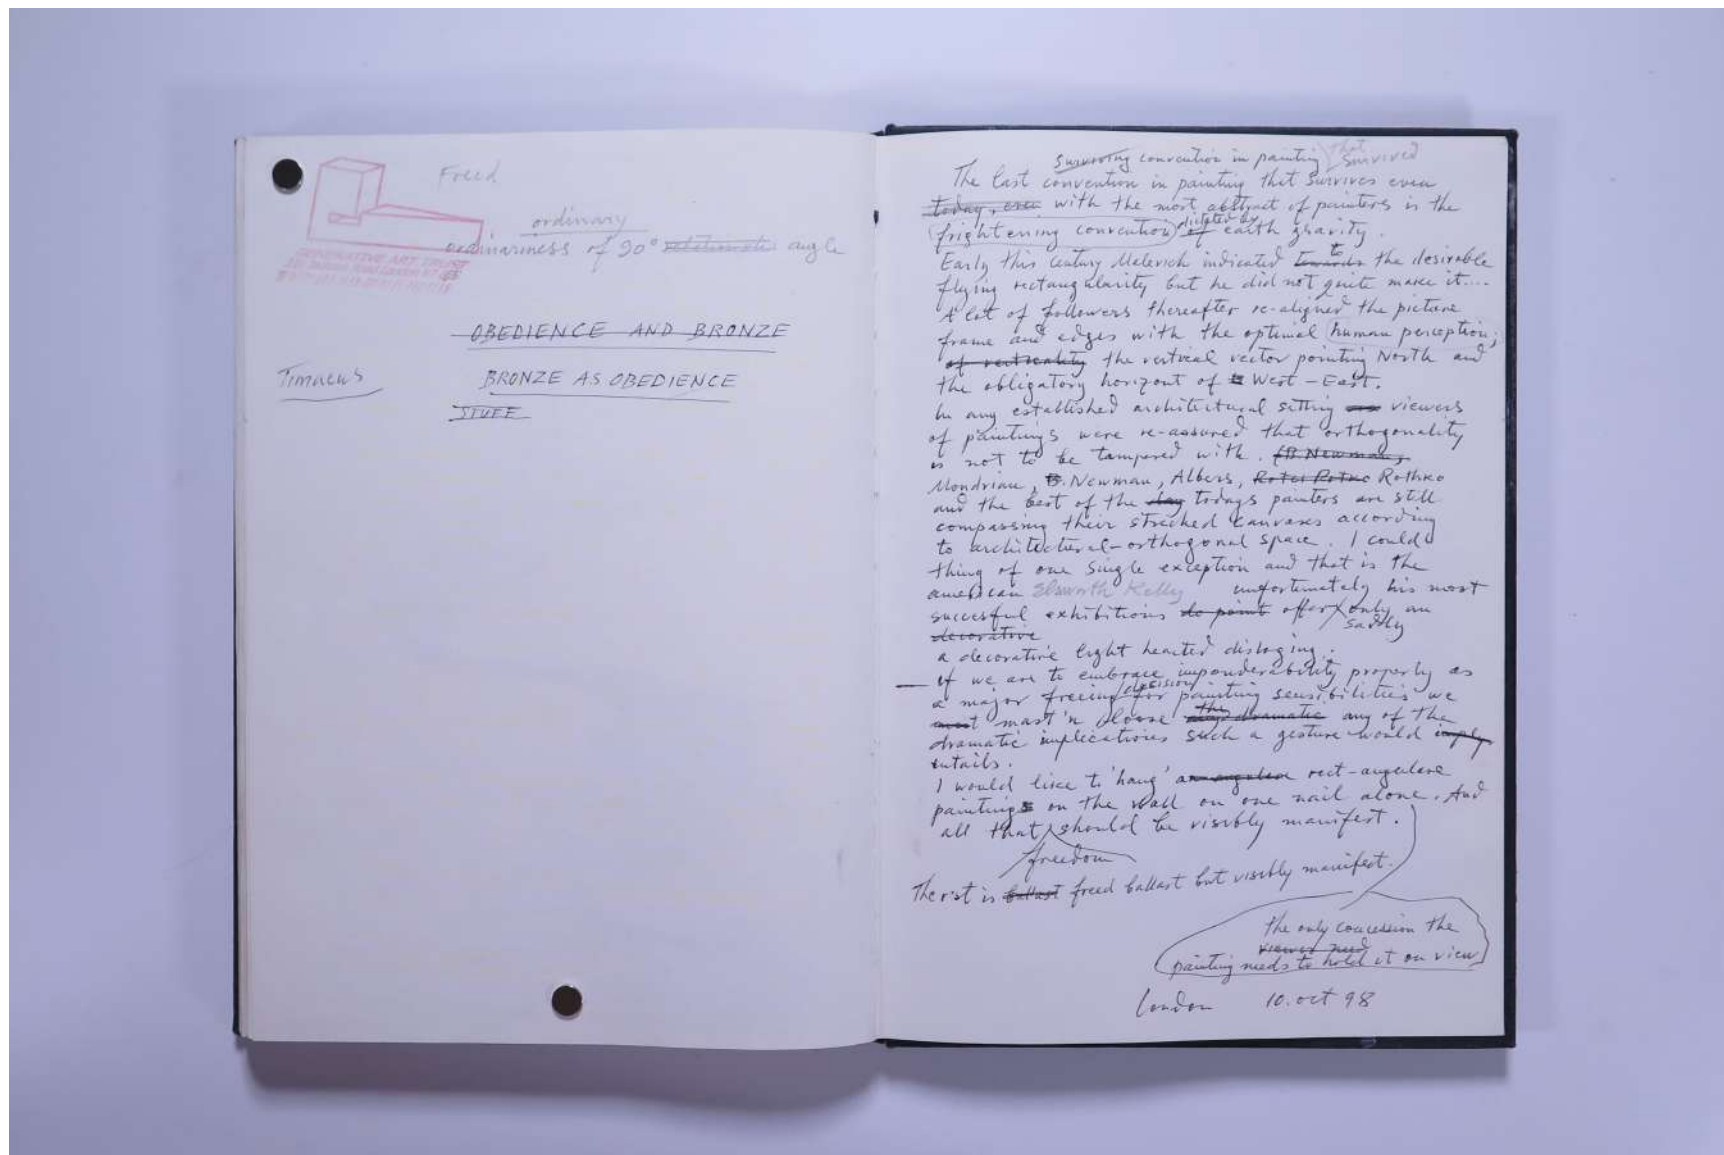 Freed
ordinary
ordinariness of 90° angle
GENERATIVE ART TRUST
OBEDIENCE AND BRONZE
Timaeus
BRONZE AS OBEDIENCE
STUFF
surviving convention in painting that survived
The last convention in painting that survives even
today, even with the most abstract of painters is the
frightening convention dictated by of earth gravity.
Early this century Malevich indicated towards to the desirable
flying rectangularity but he did not quite make it....
A lot of followers thereafter re-aligned the picture
frame and edges with the optimal human perception;
of verticality the vertical vector pointing North and
the obligatory horizont of West - East.
In any established architectural setting viewers
of paintings were re-assured that orthogonality
is not to be tampered with. (B. Newman,
Mondrian, B. Newman, Albers, Rothko
and the best of the day todays painters are still
compassing their streched canvases according
to architectural-orthogonal space. I could
thing of one single exception and that is the
american Elsworth Kelly unfortunately his most
succesful exhibitions to point offer only an
sadly
decorative
a decorative light hearted disloging.
If we are to embrace imponderability properly as
a major freeing decision for painting sensibilities we
must mast'n loose the any dramatic any of the
dramatic implications such a gesture would imply
entails.
I would like to 'hang' an angular rect-angulare
paintings on the wall on one nail alone. And
all that should be visibly manifest.
freedom
The rst is ballast freed ballast but visibly manifest.
the only concession the
viewer need
painting needs to hold it on view
London 10. oct 98